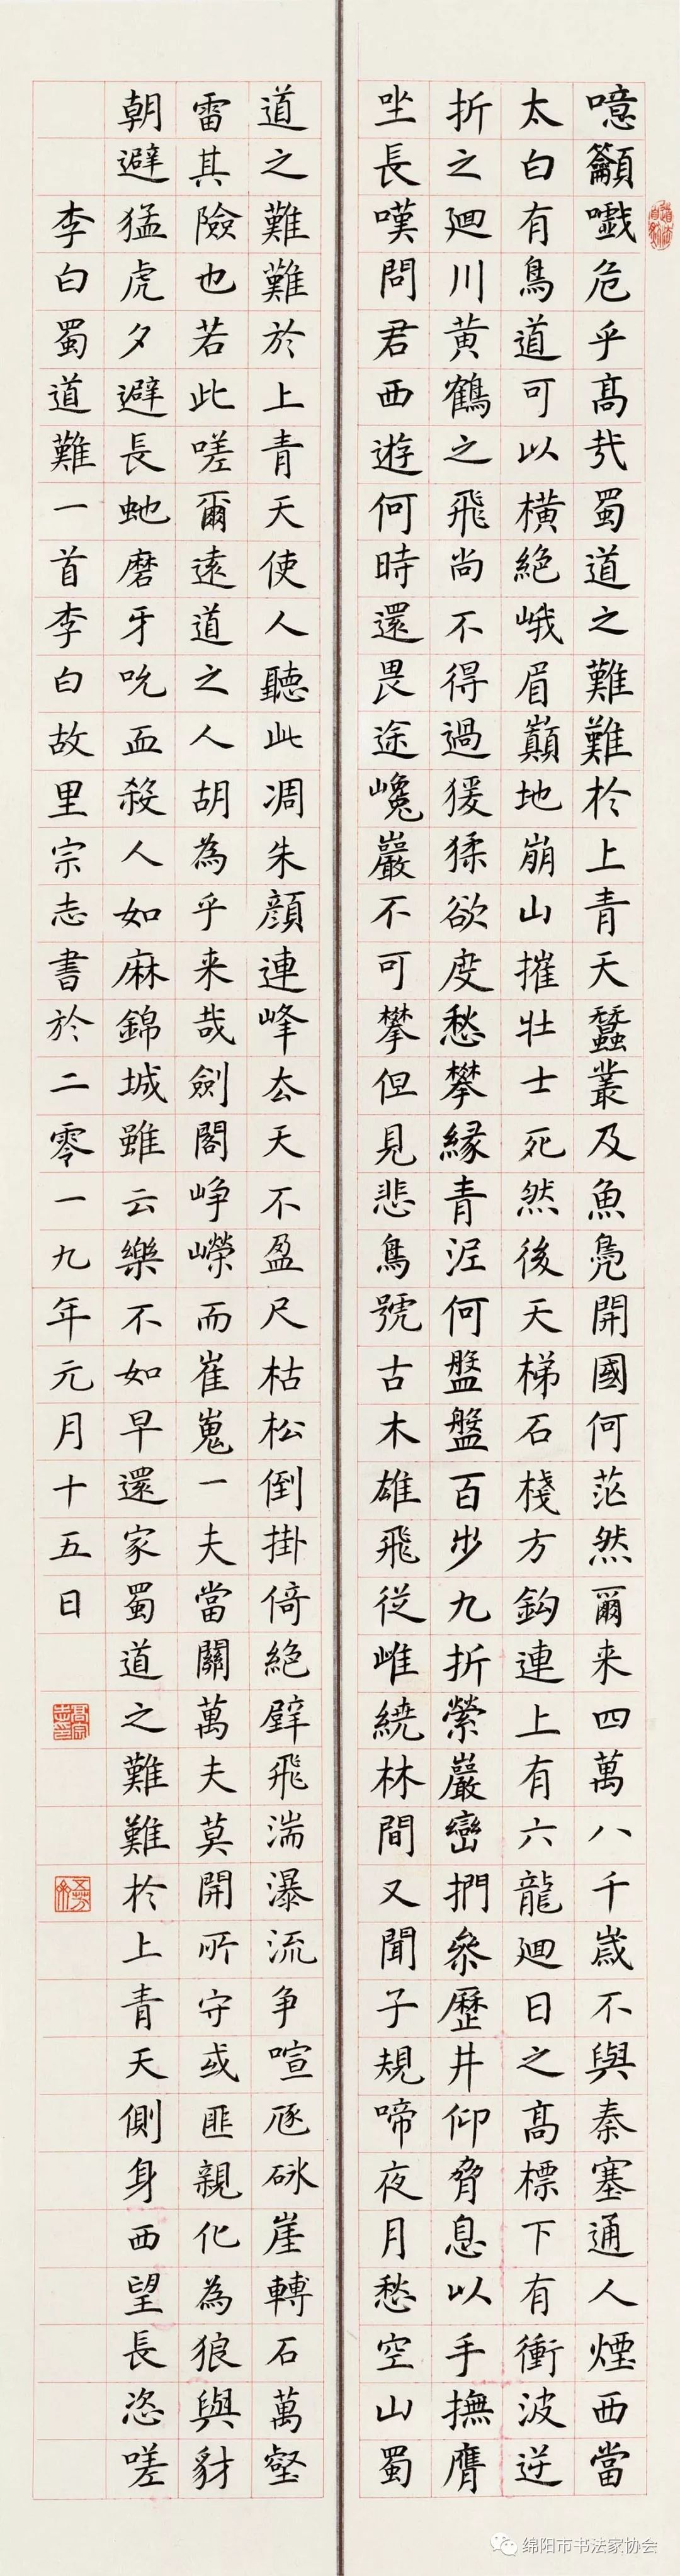 噫籲嚱危乎髙哉蜀道之難難於上青天蠶叢及魚鳧開國何茫然爾来四萬八千歲不與秦塞通人煙西當
太白有鳥道可以橫絕峨眉巔地崩山摧壯士死然後天梯石棧方鈎連上有六龍廻日之髙標下有衝波逆
折之廻川黄鶴之飛尚不得過猨猱欲度愁攀緣青泥何盤盤百步九折縈巖巒捫參歷井仰脅息以手撫膺
坐長嘆問君西遊何時還畏途巉巖不可攀但見悲鳥號古木雄飛從雌繞林間又聞子規啼夜月愁空山蜀
道之難難於上青天使人聽此凋朱顔連峰去天不盈尺枯松倒掛倚絕壁飛湍瀑流争喧豗砯崖轉石萬壑
雷其險也若此嗟爾遠道之人胡為乎来哉劍閣崢嶸而崔嵬一夫當關萬夫莫開所守或匪親化為狼與豺
朝避猛虎夕避長虵磨牙吮血殺人如麻錦城雖云樂不如早還家蜀道之難難於上青天側身西望長恣嗟
李白蜀道難一首李白故里宗志書於二零一九年元月十五日
绵阳市书法家协会